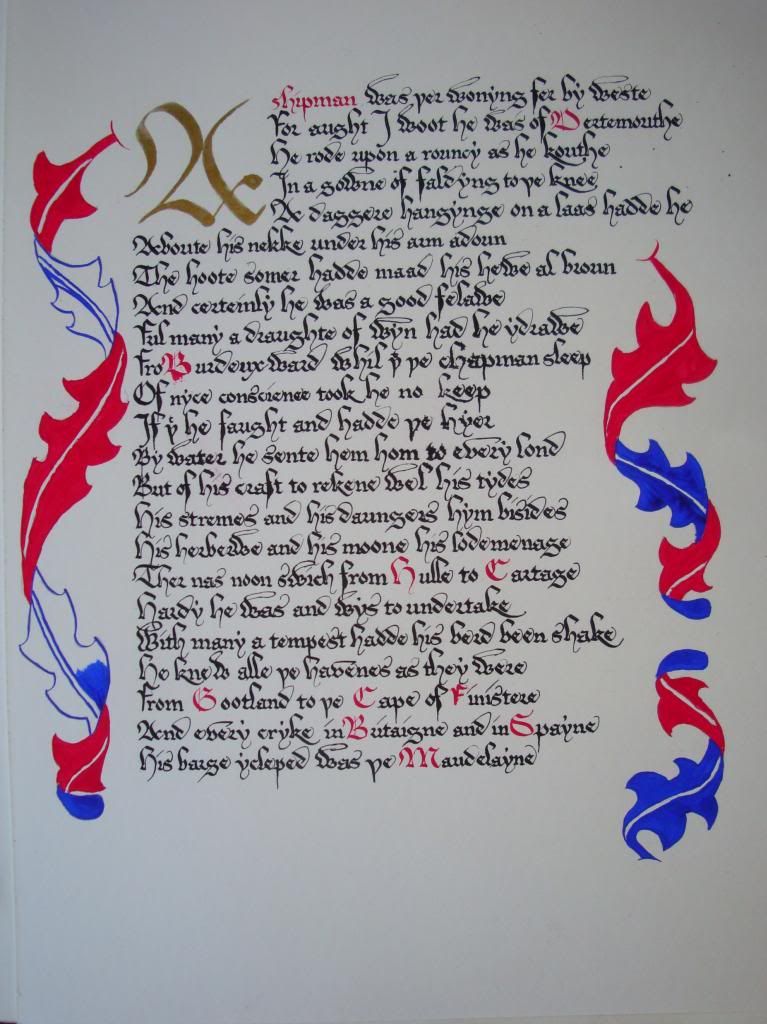 A shipman was þer wonyng fer by weste
For aught I woot he was of Dertemouthe
He rode upon a rouncy as he kouthe
In a gowne of faldyng to þe knee
A daggere hangynge on a laas hadde he
Aboute his nekke under his arm adoun
The hoote somer hadde maad his hewe al broun
And certeinly he was a good felawe
Ful many a draughte of wyn had he ydrawe
Fro Burdeux ward whil þ þe chapman sleep
Of nyce conscience took he no keep
If þ he faught and hadde þe hyer
By water he sente hem hom to every lond
But of his craft to rekene wel his tydes
His stremes and his daungers hym bisides
His herberwe and his moone his lodemenage
Ther nas noon swich from Hulle to Cartage
Hardy he was and wys to undertake
With many a tempest hadde his berd been shake
He knew alle þe havenes as they were
From Gootland to þe Cape of Finistere
And every cryke in Britaigne and in Spayne
His barge ycleped was þe Maudelayne